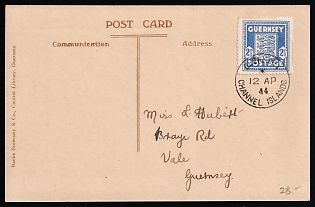 POST CARD
Communication
Address
GUERNSEY
2½ 2½
POSTAGE
12 AP
44
CHANNEL ISLANDS
Miss L Hubert
Braye Rd
Vale
Guernsey.
28.-